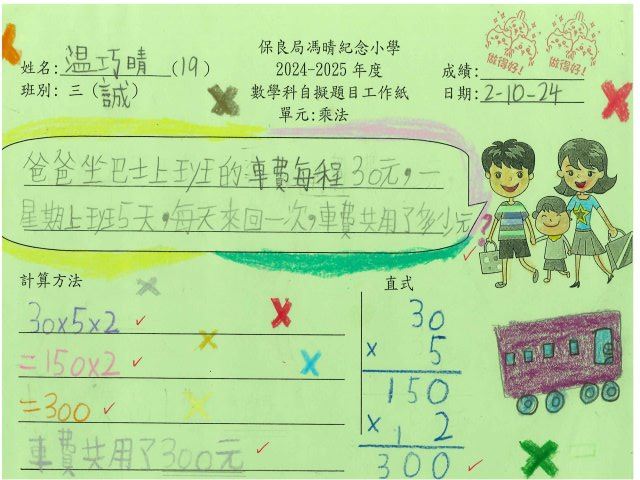 保良局馮晴紀念小學
姓名: 温巧晴 (19)
2024-2025 年度
成績:
班別: 三 (誠)
數學科自擬題目工作紙
日期: 2-10-24
單元:乘法
做得好!
做得好!
爸爸坐巴士上班的車費每程30元,一
星期上班5天,每天來回一次,車費共用了多少元?
計算方法
直式
30×5×2
=150×2
=300
車費共用了300元
30
× 5
150
× 1 2
300